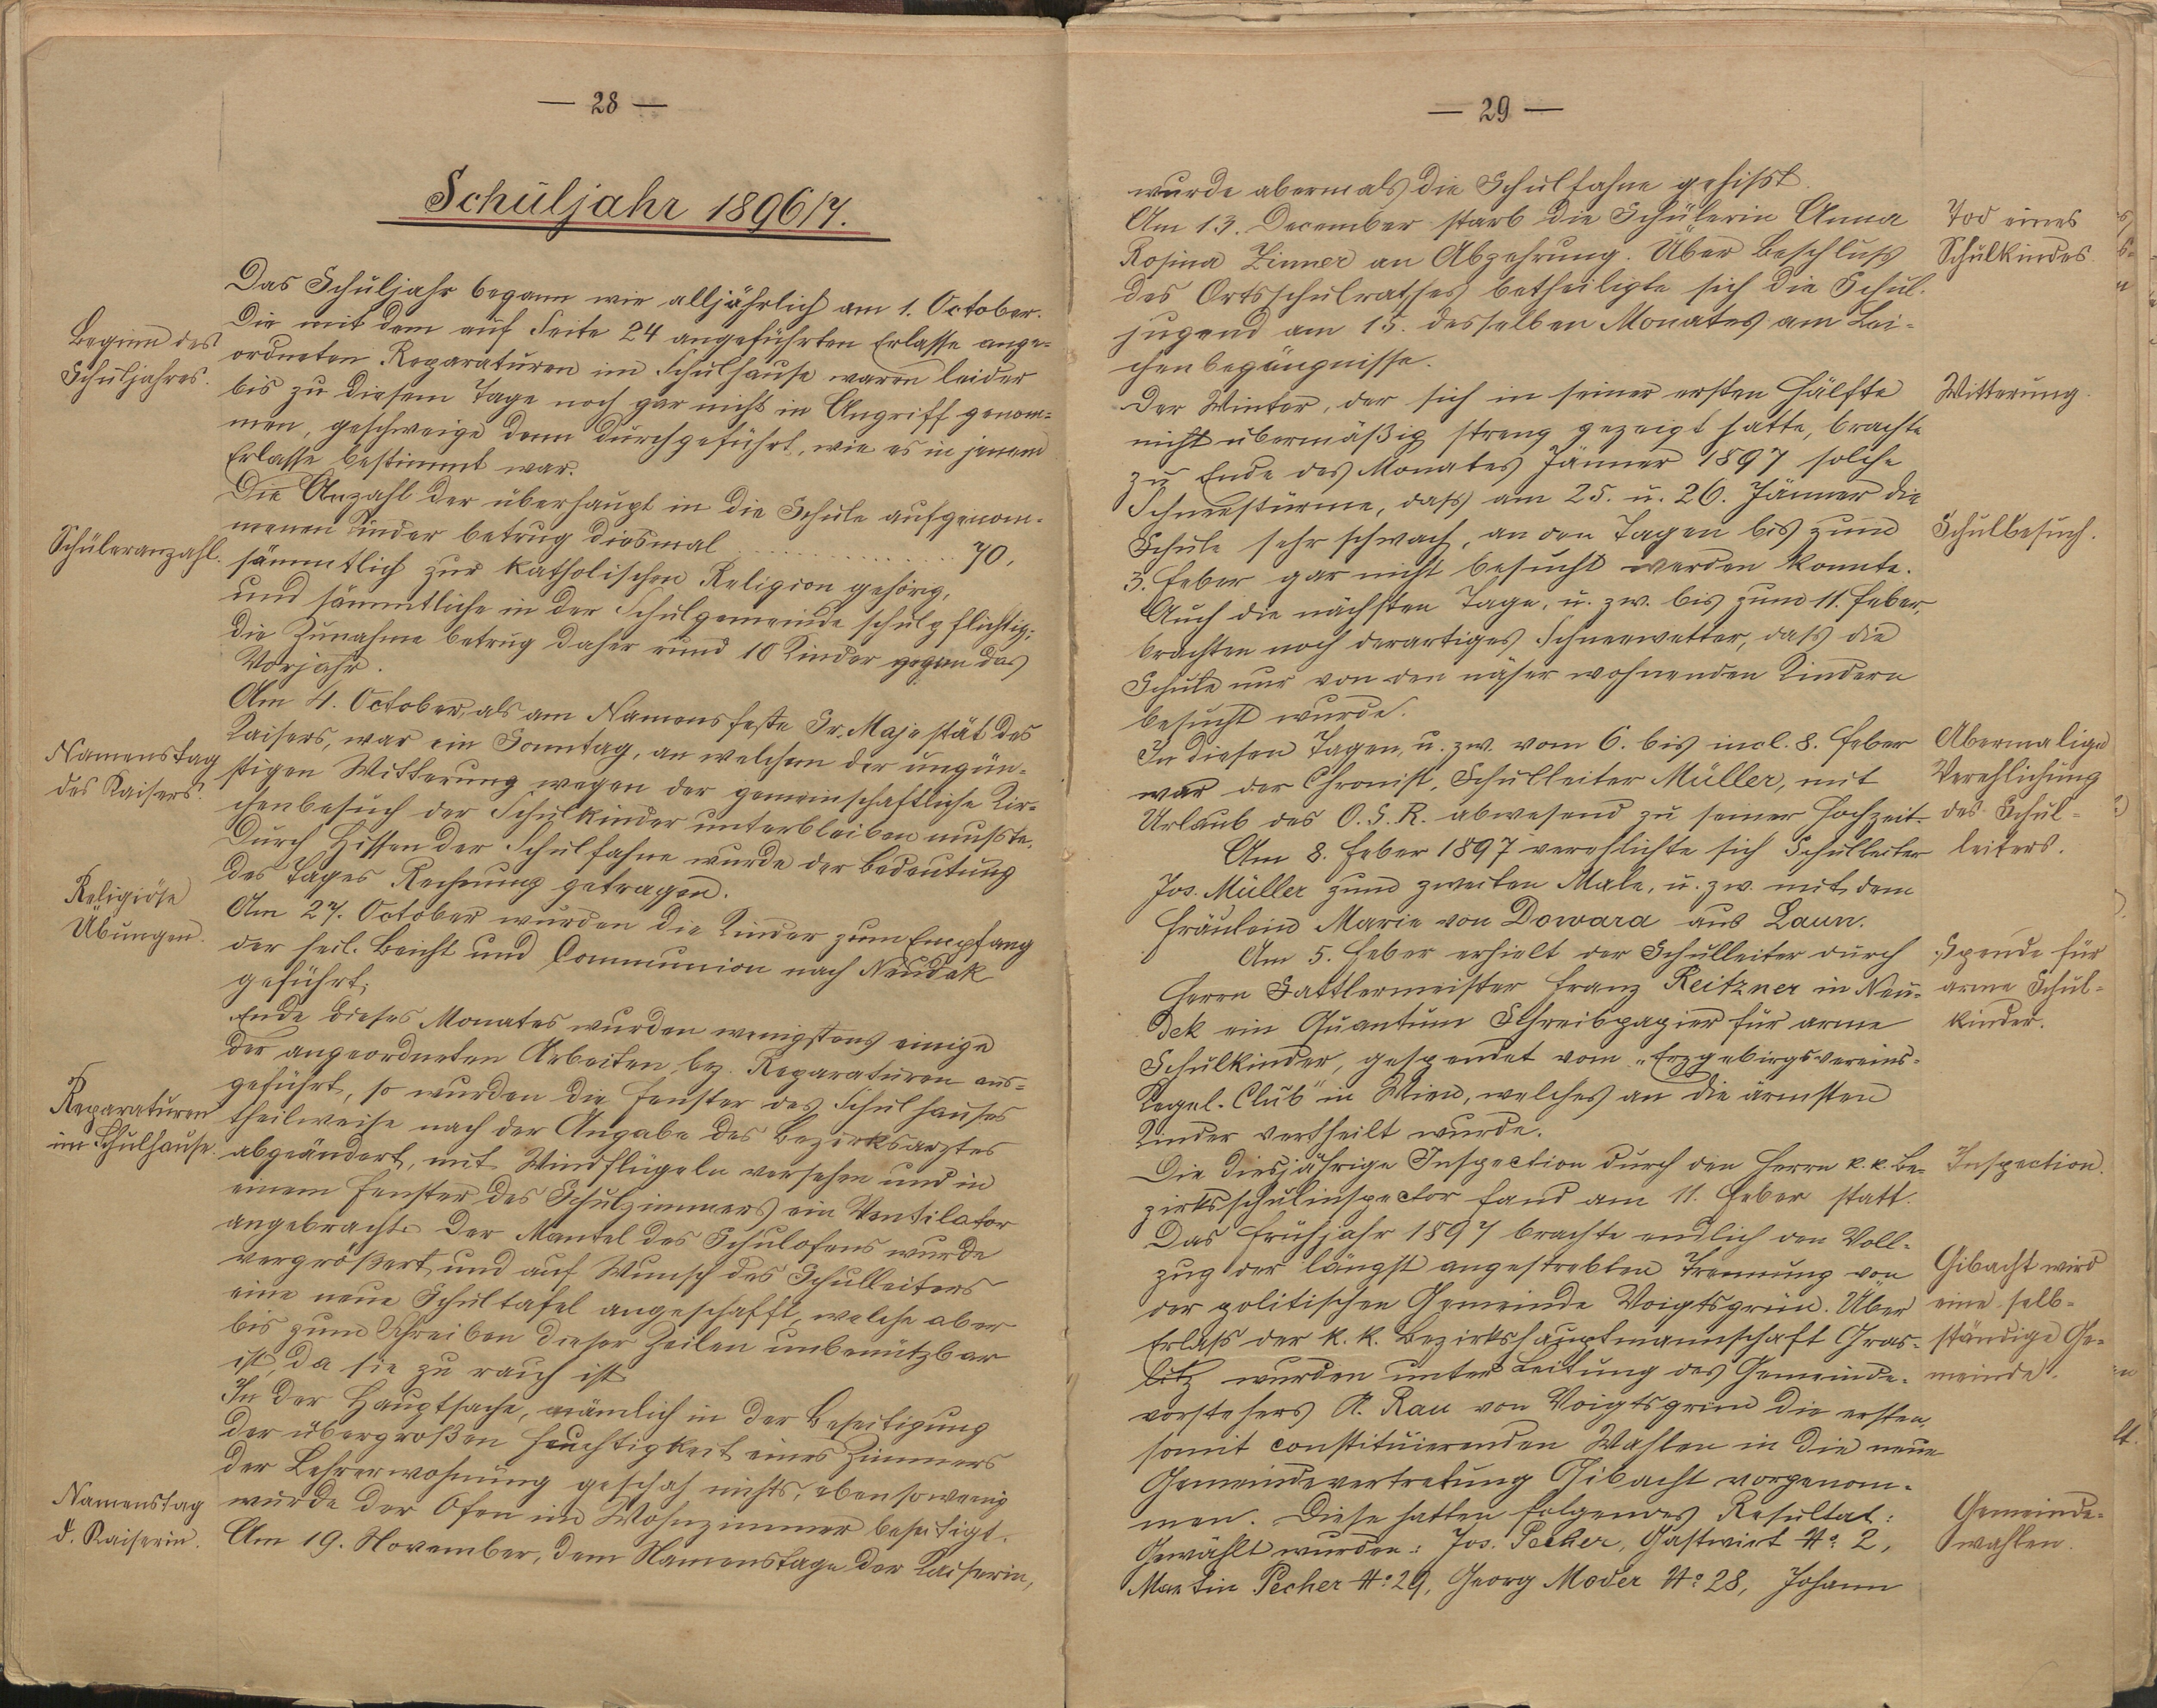 — 28 —
Schuljahr 1896/7.
Beginn des
Schuljahres.
Das Schuljahr begann wie alljährlich am 1. October.
Die mit dem auf Seite 24 angeführten Erlasse ange-
ordneten Reparaturen im Schulhause waren leider
bis zu diesem Tage noch gar nicht in Angriff genom-
men, geschweige denn durchgeführt, wie es in jenem
Erlasse bestimmt war.
Schüleranzahl.
Die Anzahl der überhaupt in die Schule aufgenom-
menen Kinder betrug diesmal . . . . . . . . . . 70,
sämmtlich zur katholischen Religion gehörig,
und sämmtliche in der Schulgemeinde schulpflichtig;
die Zunahme betrug daher rund 10 Kinder gegen das
Vorjahr.
Namenstag
des Kaisers.
Am 4. October, als am Namensfeste Sr. Majestät des
Kaisers, war ein Sonntag, an welchem der ungün-
stigen Witterung wegen der gemeinschaftliche Kir-
chenbesuch der Schulkinder unterbleiben mußte.
Durch Hissen der Schulfahne wurde der Bedeutung
des Tages Rechnung getragen.
Religiöse
Übungen.
Am 27. October wurden die Kinder zum Empfang
der heil. Beicht und Communion nach Neudek
geführt.
Reparaturen
im Schulhause.
Ende dieses Monates wurden wenigstens einige
der angeordneten Arbeiten, bez. Reparaturen aus-
geführt, so wurden die Fenster des Schulhauses
theilweise nach der Angabe des Bezirksarztes
abgeändert, mit Windflügeln versehen und in
einem Fenster des Schulzimmers ein Ventilator
angebracht. Der Mantel des Schulofens wurde
vergrößert und auf Wunsch des Schulleiters
eine neue Schultafel angeschafft, welche aber
bis zum Schreiben dieser Zeilen unbenützbar
ist, da sie zu rauh ist.
In der Hauptsache, nämlich in der Beseitigung
der übergroßen Feuchtigkeit eines Zimmers
der Lehrerwohnung geschah nichts, ebensowenig
wurde der Ofen im Wohnzimmer beseitigt.
Namenstag
d. Kaiserin.
Am 19. November, dem Namenstage der Kaiserin,
— 29 —
wurde abermals die Schulfahne gehißt.
Tod eines
Schulkindes
Am 13. December starb die Schülerin Anna
Rosina Zinner an Abzehrung. Über Beschluß
des Ortsschulrathes betheiligte sich die Schul-
jugend am 15. desselben Monates am Lei-
chenbegängnisse.
Witterung.
Der Winter, der sich in seiner ersten Hälfte
nicht übermäßig streng gezeigt hatte, brachte
zu Ende des Monates Jänner 1897 solche
Schneestürme, daß am 25. u. 26. Jänner die
Schulbesuch.
Schule sehr schwach, an den Tagen bis zum
3. Feber gar nicht besucht werden konnte.
Auch die nächsten Tage, u. zw. bis zum 11. Feber,
brachten noch derartiges Schneewetter, daß die
Schule nur von den näher wohnenden Kindern
besucht wurde.
Abermalige
Verehlichung
des Schul-
leiters.
In diesen Tagen, u. zw. vom 6. bis incl. 8. Feber
war der Chronist, Schulleiter Müller, mit
Urlaub des O. S. R. abwesend zu seiner Hochzeit.
Am 8. Feber 1897 verehlichte sich Schulleiter
Jos. Müller zum zweiten Male, u. zw. mit dem
Fräulein Marie von Dowara aus Laun.
Spende für
arme Schul-
kinder.
Am 5. Feber erhielt der Schulleiter durch
Herrn Sattlermeister Franz Reitzner in Neu-
dek ein Quantum Schreibpapier für arme
Schulkinder, gespendet vom „Erzgebirgsvereins-
Kegel-Club“ in Wien, welches an die ärmsten
Kinder vertheilt wurde.
Inspection.
Die diesjährige Inspection durch den Herrn k. k. Be-
zirksschulinspector fand am 11. Feber statt.
Gibacht wird
eine selb-
ständige Ge-
meinde.
Das Frühjahr 1897 brachte endlich den Voll-
zug der längst angestrebten Trennung von
der politischen Gemeinde Voigtsgrün. Über
Erlaß der k. k. Bezirkshauptmannschaft Gras-
litz wurden unter Leitung des Gemeinde-
vorstehers A. Rau von Voigtsgrün die ersten,
somit constituierenden Wahlen in die neue
Gemeindevertretung Gibacht vorgenom-
men. Diese hatten folgendes Resultat:
Gemeinde-
wahlen.
Gewählt wurden: Jos. Pecher, Gastwirt No. 2,
Martin Pecher No. 29, Georg Moder No. 28, Johann